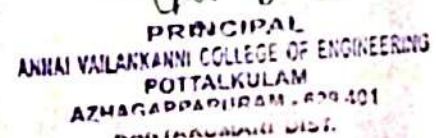 PRINCIPAL
ANNAI VAILANKANNI COLLEGE OF ENGINEERING
POTTALKULAM
AZHAGAPPAPURAM - 629 401
DIST.